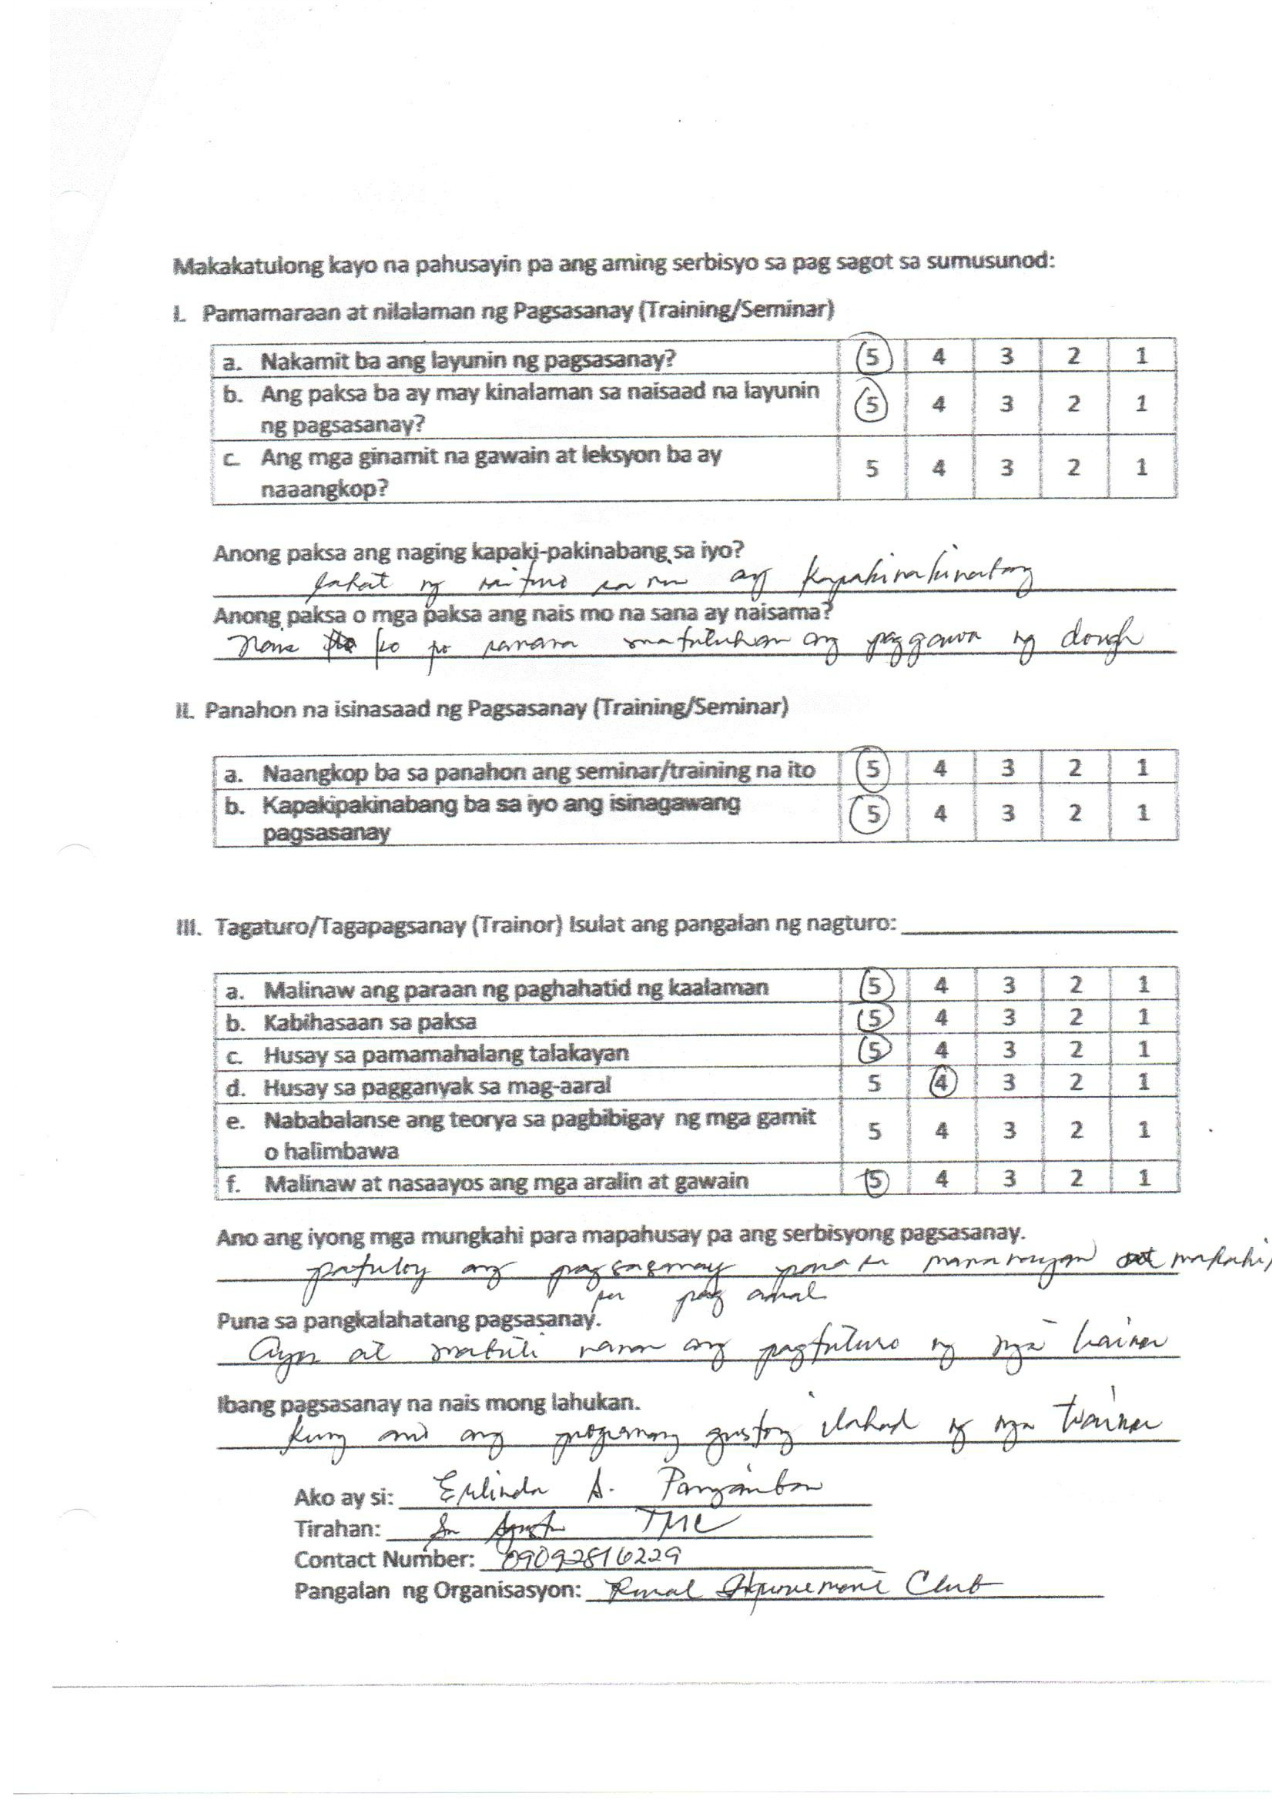 Makakatulong kayo na pahusayin pa ang aming serbisyo sa pag sagot sa sumusunod:
I. Pamamaraan at nilalaman ng Pagsasanay (Training/Seminar)
a. Nakamit ba ang layunin ng pagsasanay? 5 4 3 2 1
b. Ang paksa ba ay may kinalaman sa naisaad na layunin
ng pagsasanay? 5 4 3 2 1
c. Ang mga ginamit na gawain at leksyon ba ay
naaangkop? 5 4 3 2 1
Anong paksa ang naging kapaki-pakinabang sa iyo?
Lahat ng ay kapakinakinabang
Anong paksa o mga paksa ang nais mo na sana ay naisama?
Nais ko po sanana matutuhan ang paggawa ng dough
II. Panahon na isinasaad ng Pagsasanay (Training/Seminar)
a. Naangkop ba sa panahon ang seminar/training na ito 5 4 3 2 1
b. Kapakipakinabang ba sa iyo ang isinagawang
pagsasanay 5 4 3 2 1
III. Tagaturo/Tagapagsanay (Trainor) Isulat ang pangalan ng nagturo:
a. Malinaw ang paraan ng paghahatid ng kaalaman 5 4 3 2 1
b. Kabihasaan sa paksa 5 4 3 2 1
c. Husay sa pamamahalang talakayan 5 4 3 2 1
d. Husay sa pagganyak sa mag-aaral 5 4 3 2 1
e. Nababalanse ang teorya sa pagbibigay ng mga gamit
o halimbawa 5 4 3 2 1
f. Malinaw at nasaayos ang mga aralin at gawain 5 4 3 2 1
Ano ang iyong mga mungkahi para mapahusay pa ang serbisyong pagsasanay.
patuloy ang pagsasanay para sa mamamayan
pag aaral
Puna sa pangkalahatang pagsasanay.
Ayos at mabuti naman ang pagtuturo ng mga trainer
Ibang pagsasanay na nais mong lahukan.
Kung ano ang programang gustong ilahad ng mga trainer
Ako ay si: Erlinda A. Panganiban
Tirahan: San Agustin TMC
Contact Number: 09092816229
Pangalan ng Organisasyon: Rural Improvement Club